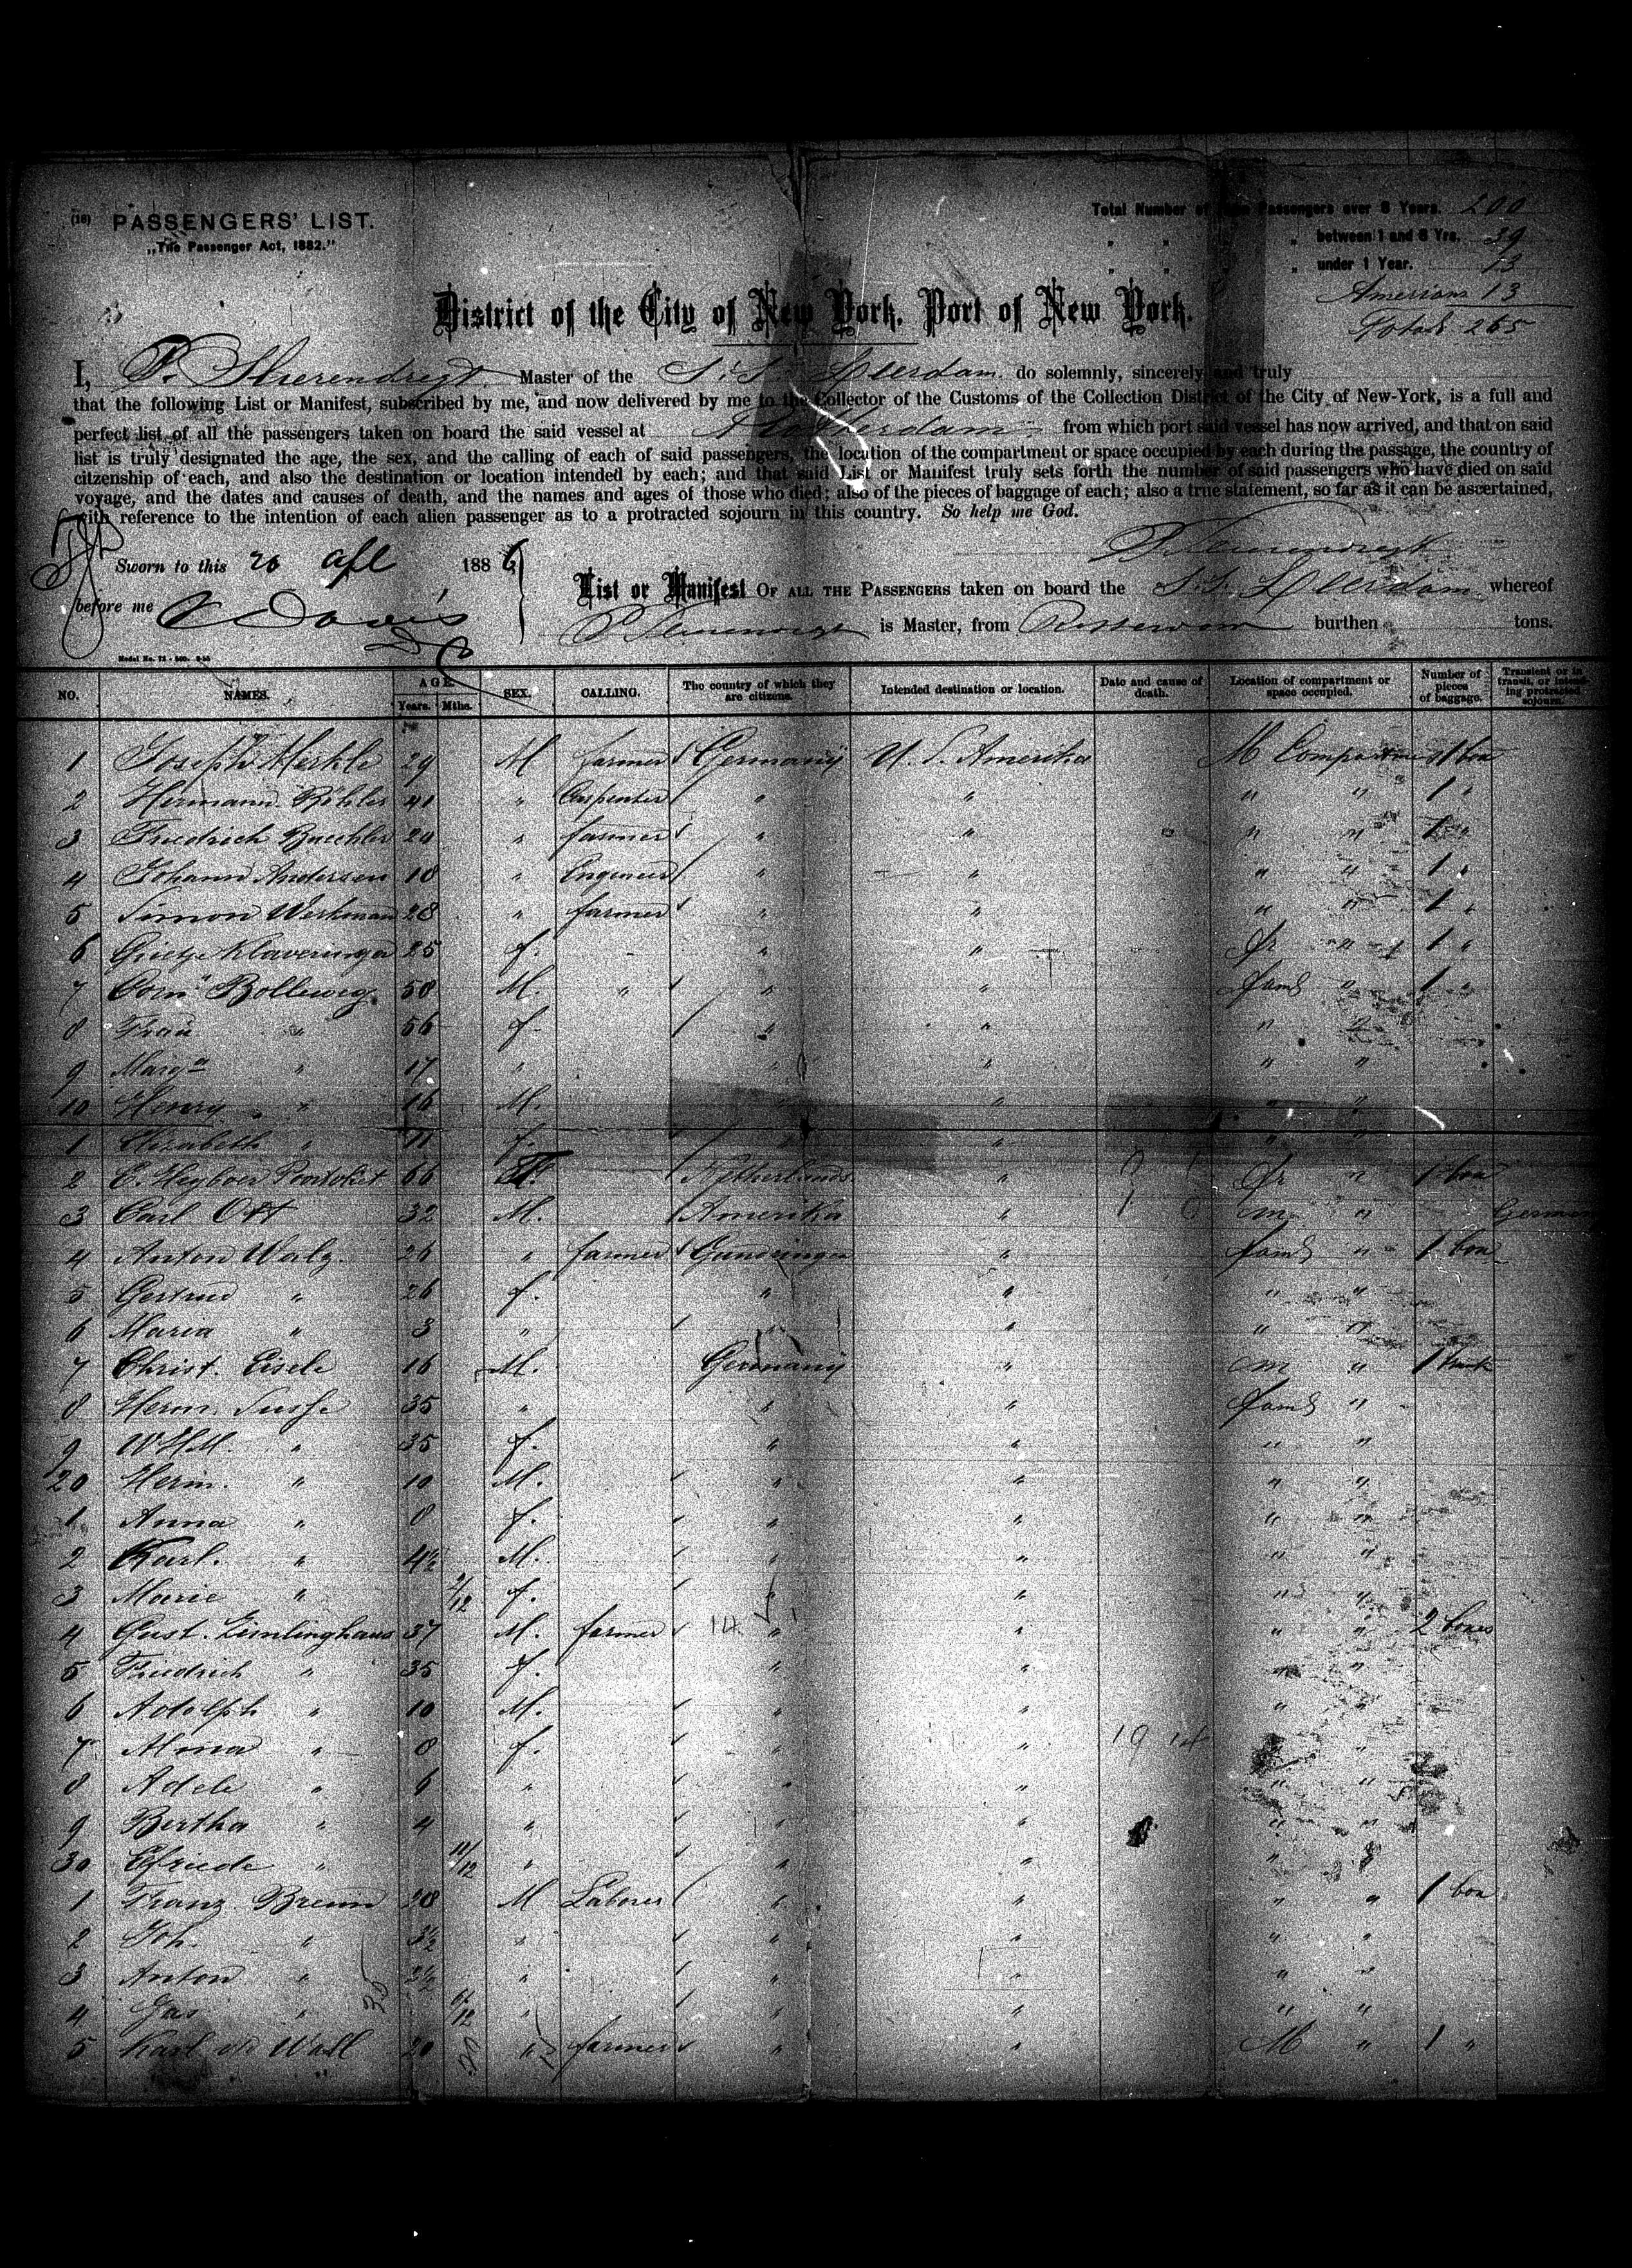 (16) PASSENGERS' LIST.
„The Passenger Act, 1882."
Total Number of Passengers over 8 Years. 200
„ „ „ between 1 and 8 Yrs. 39
„ „ „ under 1 Year. 13
Americans 13
Total 265
District of the City of New York, Port of New York.
I, P. Master of the S.S. Leerdam do solemnly, sincerely and truly
that the following List or Manifest, subscribed by me, and now delivered by me to the Collector of the Customs of the Collection District of the City of New-York, is a full and
perfect list of all the passengers taken on board the said vessel at Rotterdam from which port said vessel has now arrived, and that on said
list is truly designated the age, the sex, and the calling of each of said passengers, the location of the compartment or space occupied by each during the passage, the country of
citzenship of each, and also the destination or location intended by each; and that said List or Manifest truly sets forth the number of said passengers who have died on said
voyage, and the dates and causes of death, and the names and ages of those who died; also of the pieces of baggage of each; also a true statement, so far as it can be ascertained,
with reference to the intention of each alien passenger as to a protracted sojourn in this country. So help me God.
Sworn to this 26 Apl 1886
before me Davis
List or Manifest OF ALL THE PASSENGERS taken on board the S.S. Leerdam whereof
is Master, from Rotterdam burthen tons.
NO. NAMES. AGE. Years. Mths. SEX. CALLING. The country of which they are citizens. Intended destination or location. Date and cause of death. Location of compartment or space occupied. Number of pieces of baggage. Transient or in transit, or intending protracted sojourn.
1 Joseph Merkle 29 M farmer Germany U. S. Amerika M 1 box
2 Hermann 41 " Carpenter " " " " 1 "
3 Friedrich Buechler 20 " farmer " " " " 1 "
4 Johann Andersen 18 " Engineer " " " " 1 "
5 Simon Werkman 28 " farmer " " " " 1 "
6 25 f. " " " 1 "
7 Corn. Bolleweg 58 M. " " " Fam " 1 "
8 Frau " 56 f. " " " "
9 Marga " 17 " " " " "
10 Henry " 16 M. " " " "
1 Elisabeth " 11 f. " " " "
2 66 F. Netherlands " " 1 box
3 Carl Ott 32 M. Amerika " m " German
4 Anton Walz 26 " farmer " Fam " 1 box
5 Gertrud " 26 f. " " " "
6 Maria " 3 " " " "
7 Christ. Eisele 16 M. Germany " m " 1 trunk
8 Herm. Susse 35 " " " Fam "
9 " 35 f. " " " "
20 Herm. " 10 M. " " " "
1 Anna " 8 f. " " " "
2 Karl. " 4½ M. " " " "
3 Marie " f. " " " "
4 Gust. 37 M. farmer " " " " 2 boxes
5 Friedrich " 35 f. " " "
6 Adolph " 10 M. " " " "
7 Alma " 8 f. " " "
8 Adele " 6 " " " " "
9 Bertha " 4 " " " " "
30 Elfriede " 11/12 " " " "
1 Franz Breun 28 M Laborer " " " " 1 box
2 Joh. " 3½ " " " " "
3 Anton " 2½ " " " " "
4 " " " " " "
5 Karl 20 " farmer " " M " 1 "